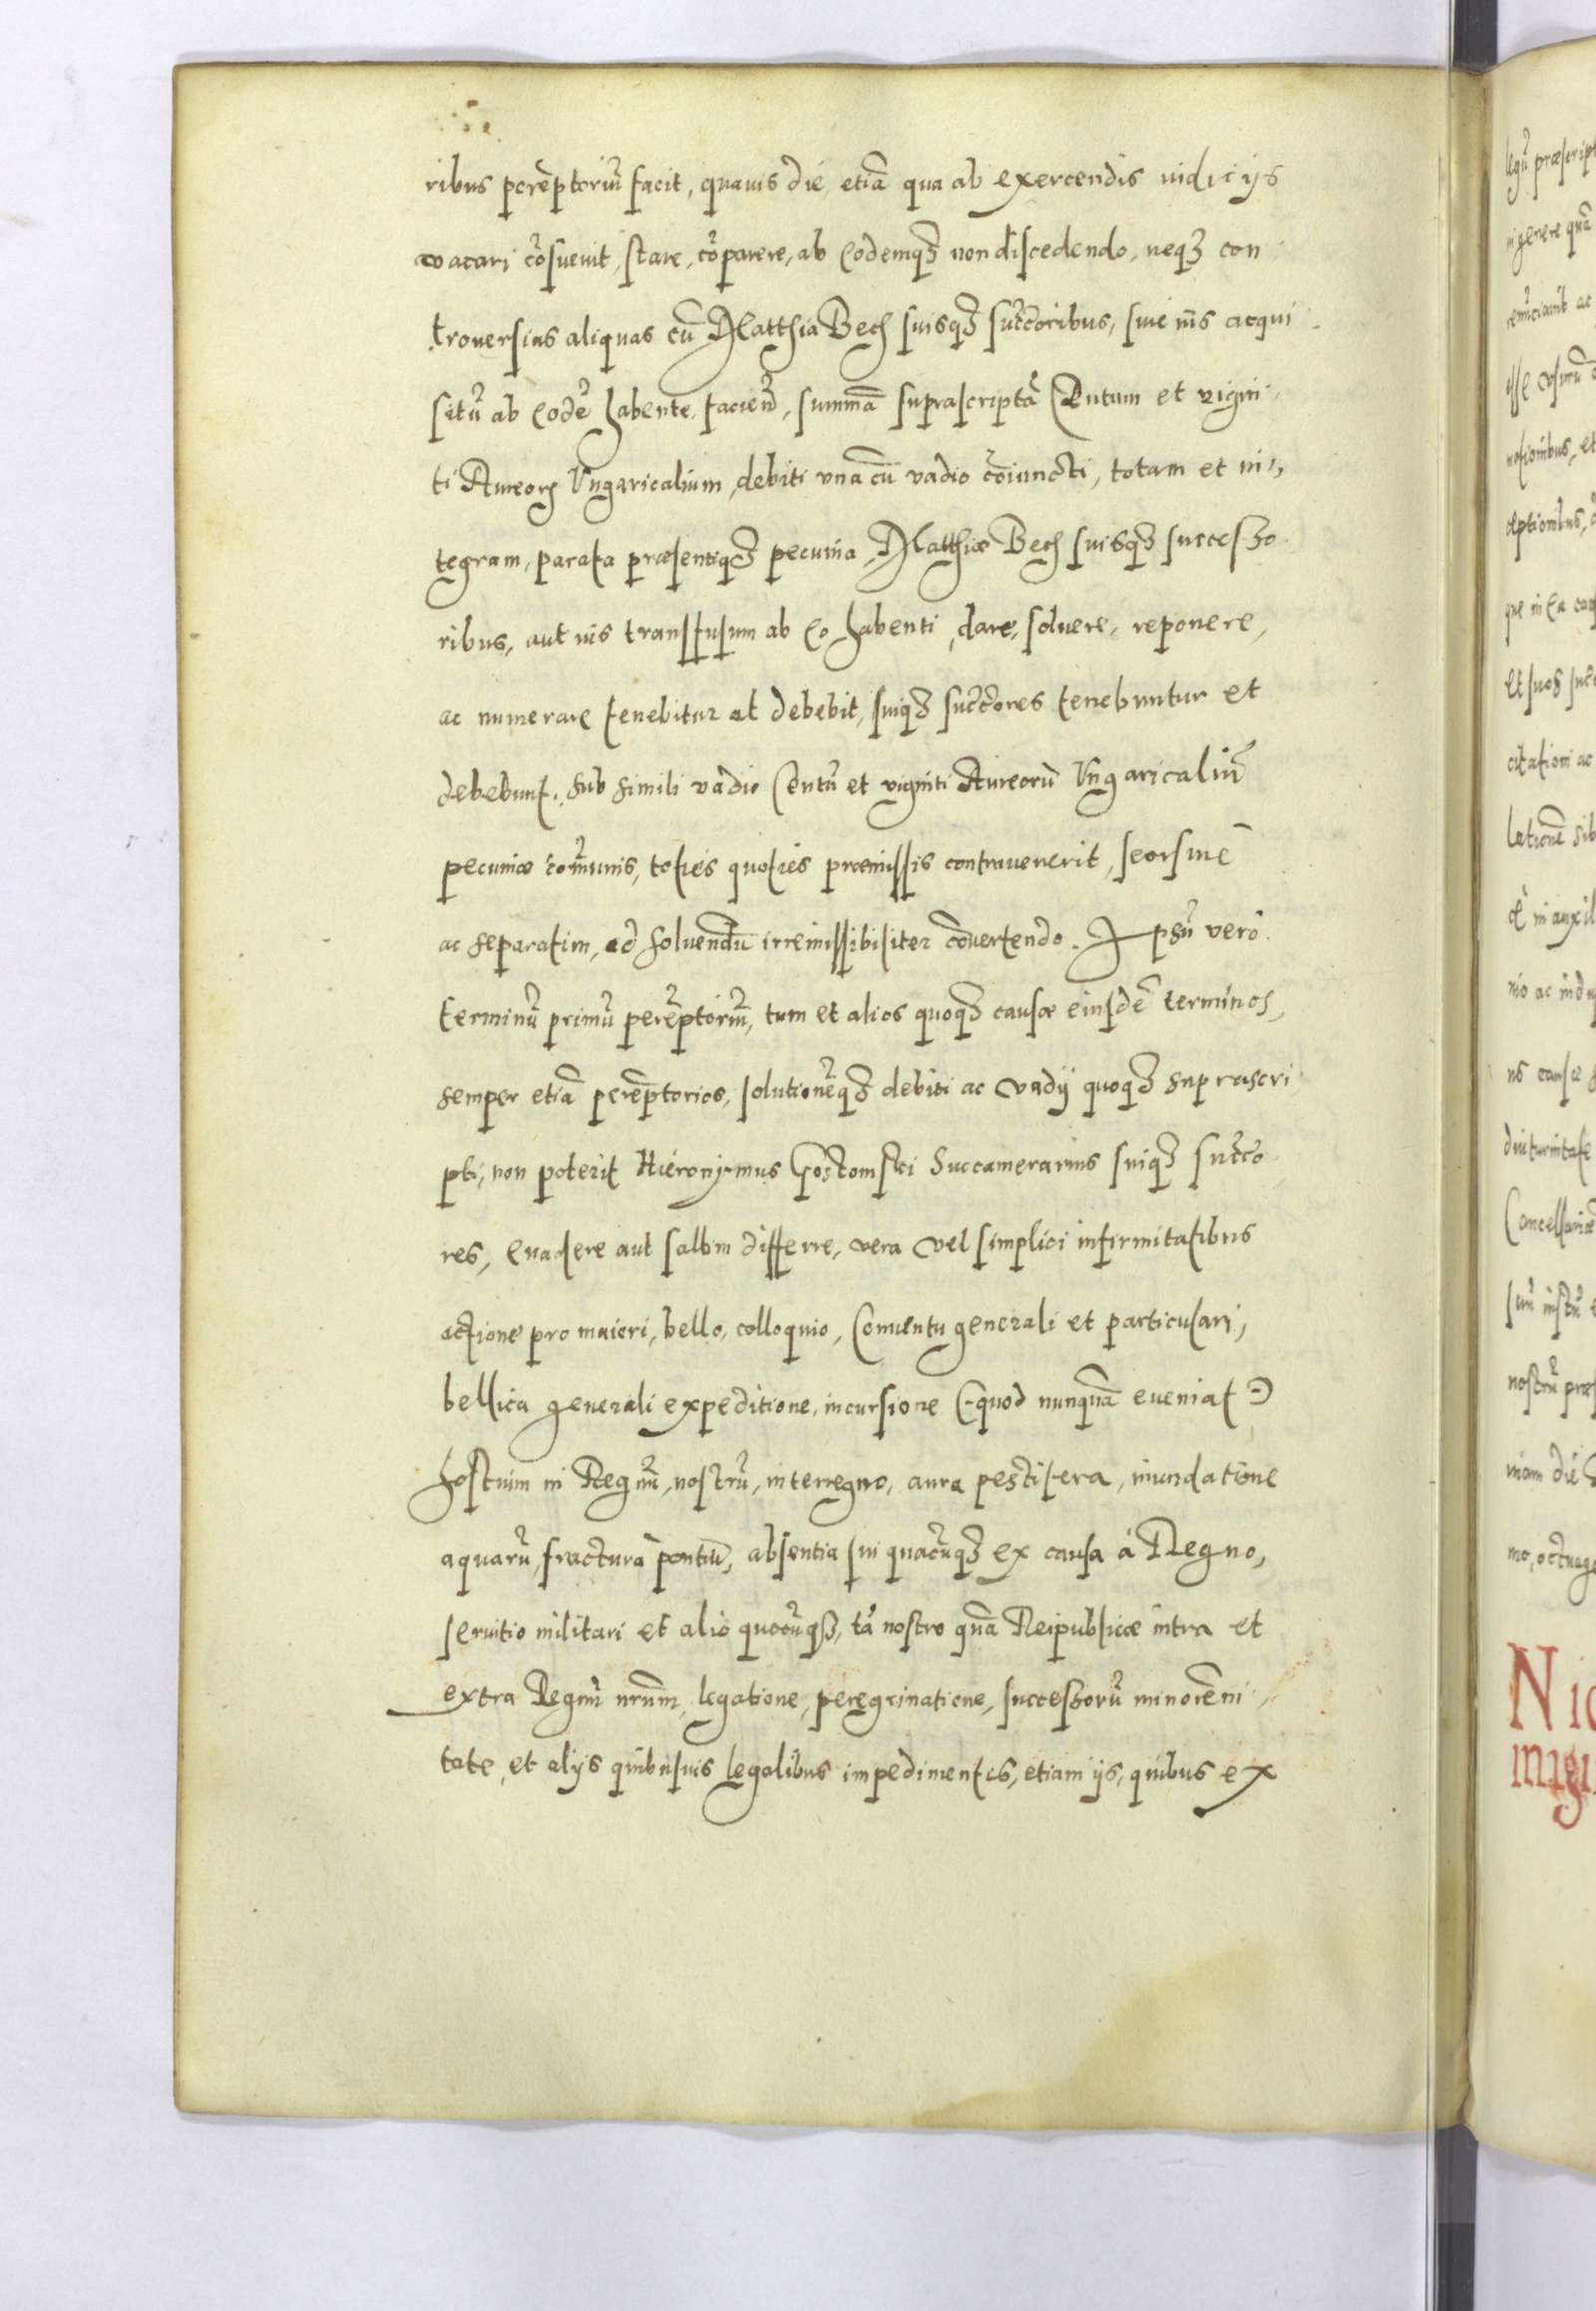 ribus perẽptoriũ facit, quauis die etiã qua ab exercendis iudicijs
vacari cõsueuit, stare, cõparere, ab eodemq3 non discedendo, neq3 con
trouersias aliquas cũ Matthia Bech suisq3 succ̃oribus, siue ius acqui
situ ab eodẽ habente, facien̄, summã suprascriptã Centum et vigin
ti Aureorȝ Vngaricalium, debiti vna cũ vadio cõiuncti, totam et in,
tegram, parata præsentiq3 pecunia Matthiæ Bech suisq3 successo
ribus, aut ius transfusum ab eo habenti, dare, soluere, reponere,
ac numerare tenebitur et debebit, suiq3 succ̃ores tenebuntur et
debebunt, sub simili vadio Centũ et viginti Aureorũ Vngaricaliũ
pecuniæ com̃unis, toties quoties præmissis contrauenerit, seorsiuẽ
ac separatim, ad soluendũ irremissibiliter cõuertendo. Ipsũ vero
terminũ primũ perẽptoriũ, tum et alios quoq3 causæ eiusdẽ terminos,
semper etiã perẽptorios, solutionẽq3 debiti ac vadij quoq3 suprascri
pti, non poterit Hieronymus Gostomski Succamerarius suiq3 succ̃o
res, euadere aut saltim differre, vera vel simplici infirmitatibus
actione pro maiori, bello, colloquio, Conuentu generali et particulari,
bellica generali expeditione, incursione (-quod nunquã eueniat-)
hostium in Regnũ nostrũ, interregno, aura pestifera, inundatione
aquarũ, fractura pontiũ, absentia sui quacũq3 ex causa à Regno,
seruitio militari et alio quocũq3, tã nostro quã Reipublicæ intra et
extra Regnũ nrũm, legatione, peregrinatione, successorũ minorẽni
tate, et alijs quibusuis legalibus impedimentis, etiam ijs, quibus ex
legũ præscript
in genere quã
renũciauit ac
et suos succ
citationi ac
nostrũ præs
Nic